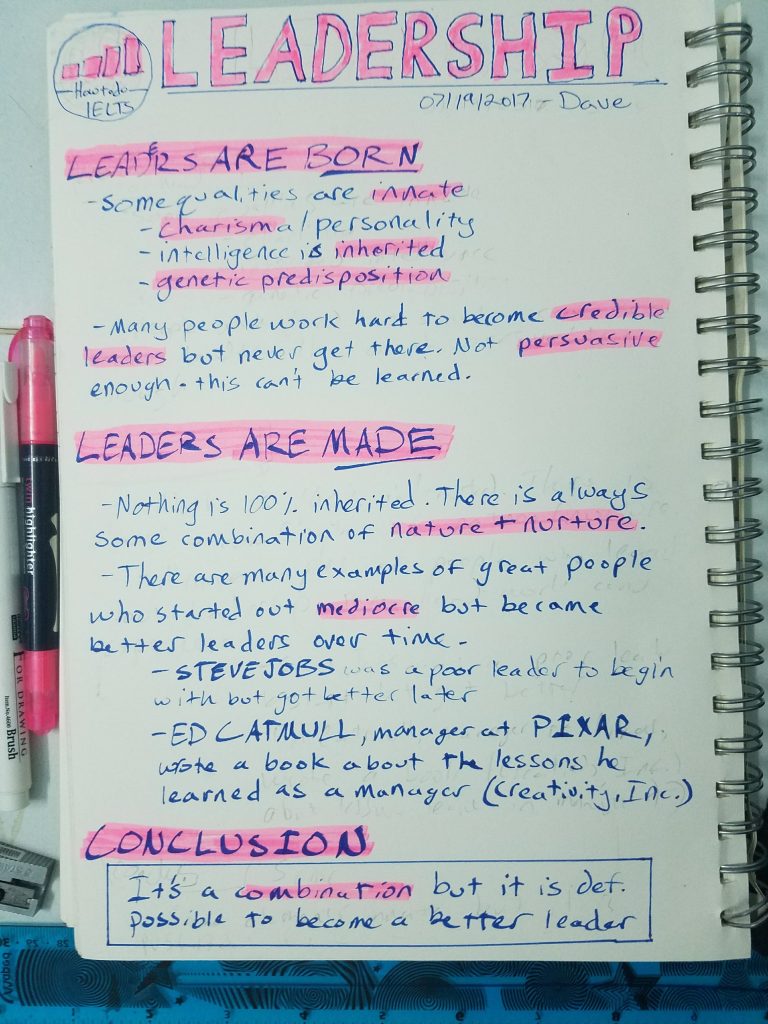 LEADERSHIP
Howtodo
IELTS
07/19/2017 - Dave
LEADERS ARE BORN
- Some qualities are innate
- charisma/personality
- intelligence is inherited
- genetic predisposition
- Many people work hard to become credible
leaders but never get there. Not persuasive
enough - this can't be learned.
LEADERS ARE MADE
- Nothing is 100% inherited. There is always
some combination of nature + nurture.
- There are many examples of great people
who started out mediocre but became
better leaders over time.
- STEVE JOBS was a poor leader to begin
with but got better later
- ED CATMULL, manager at PIXAR,
wrote a book about the lessons he
learned as a manager (Creativity, Inc.)
CONCLUSION
It's a combination but it is def.
possible to become a better leader
twin highlighter
FOR DRAWING
Item No. 4600 Brush
Maped
30 29 28